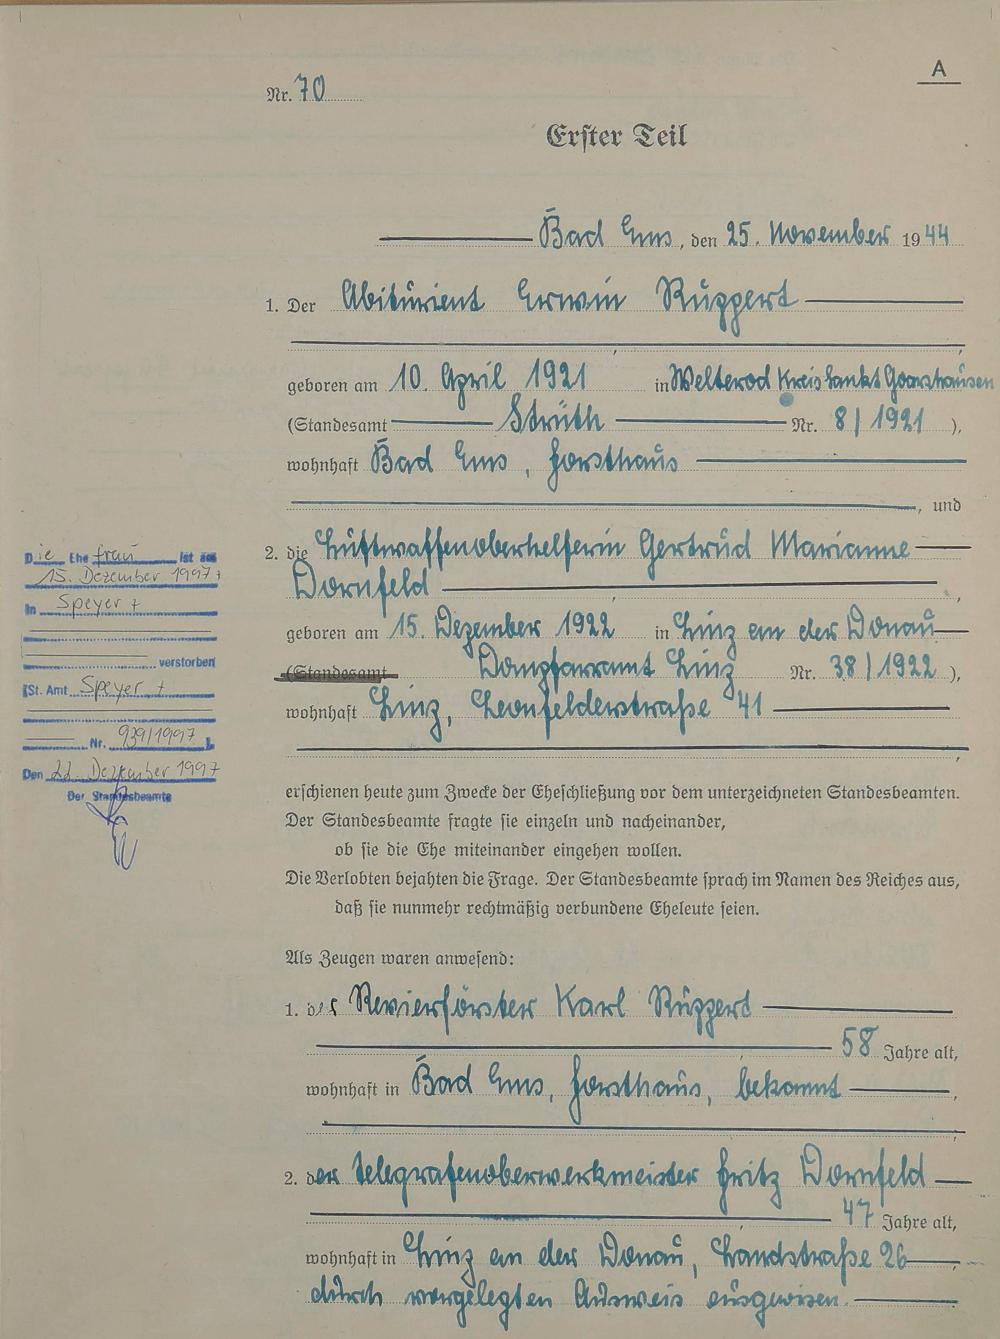 A
Nr. 70
Erster Teil
Bad Ems, den 25. November 1944
1. Der Abiturient Erwin Ruppert
geboren am 10. April 1921 in Welterod Kreis Sankt Goarshausen
(Standesamt Strüth Nr. 8/1921 ),
wohnhaft Bad Ems, Forsthaus
, und
2. die Luftwaffenoberhelferin Gertrud Marianne
Dornfeld ,
geboren am 15. Dezember 1922 in Linz an der Donau
(Standesamt Dompfarramt Linz Nr. 38/1922 ),
wohnhaft Linz, Leonfelderstraße 41
,
erschienen heute zum Zwecke der Eheschließung vor dem unterzeichneten Standesbeamten.
Der Standesbeamte fragte sie einzeln und nacheinander,
ob sie die Ehe miteinander eingehen wollen.
Die Verlobten bejahten die Frage. Der Standesbeamte sprach im Namen des Reiches aus,
daß sie nunmehr rechtmäßig verbundene Eheleute seien.
Als Zeugen waren anwesend:
1. der Revierförster Karl Ruppert
58 Jahre alt,
wohnhaft in Bad Ems, Forsthaus, bekannt ,
2. der Telegrafenoberwerkmeister Fritz Dornfeld
47 Jahre alt,
wohnhaft in Linz an der Donau, Landstraße 26 ,
durch vorgelegten Ausweis ausgewiesen.
Die Ehefrau ist am
15. Dezember 1997
in Speyer
verstorben
(St. Amt Speyer
Nr. 939/1997 ).
Den 22. Dezember 1997
Der Standesbeamte